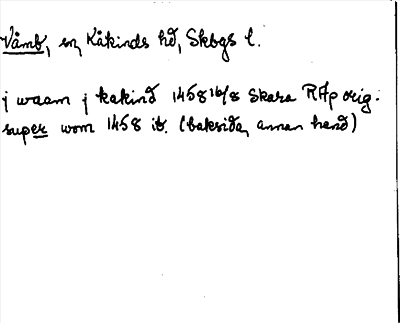 Våmb, sn, Kåkinds hd, Skbgs l.
j waam j kakind 1458 16/8 Skara RAp orig.
super wom 1458 ib. (baksida, annan hand)